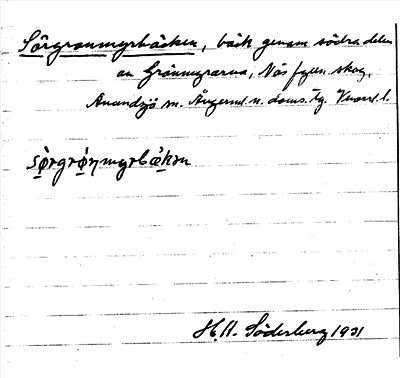 Sörgranmyrbäcken, bäck genom södra delen
av Grånmyrarna, Näs fjälln. skog,
Anundsjö sn. Ångerml. n. doms. tg. Vnorrl. l.
sö̀rgrö́nmyrbäkən
H. A. Söderberg 1931